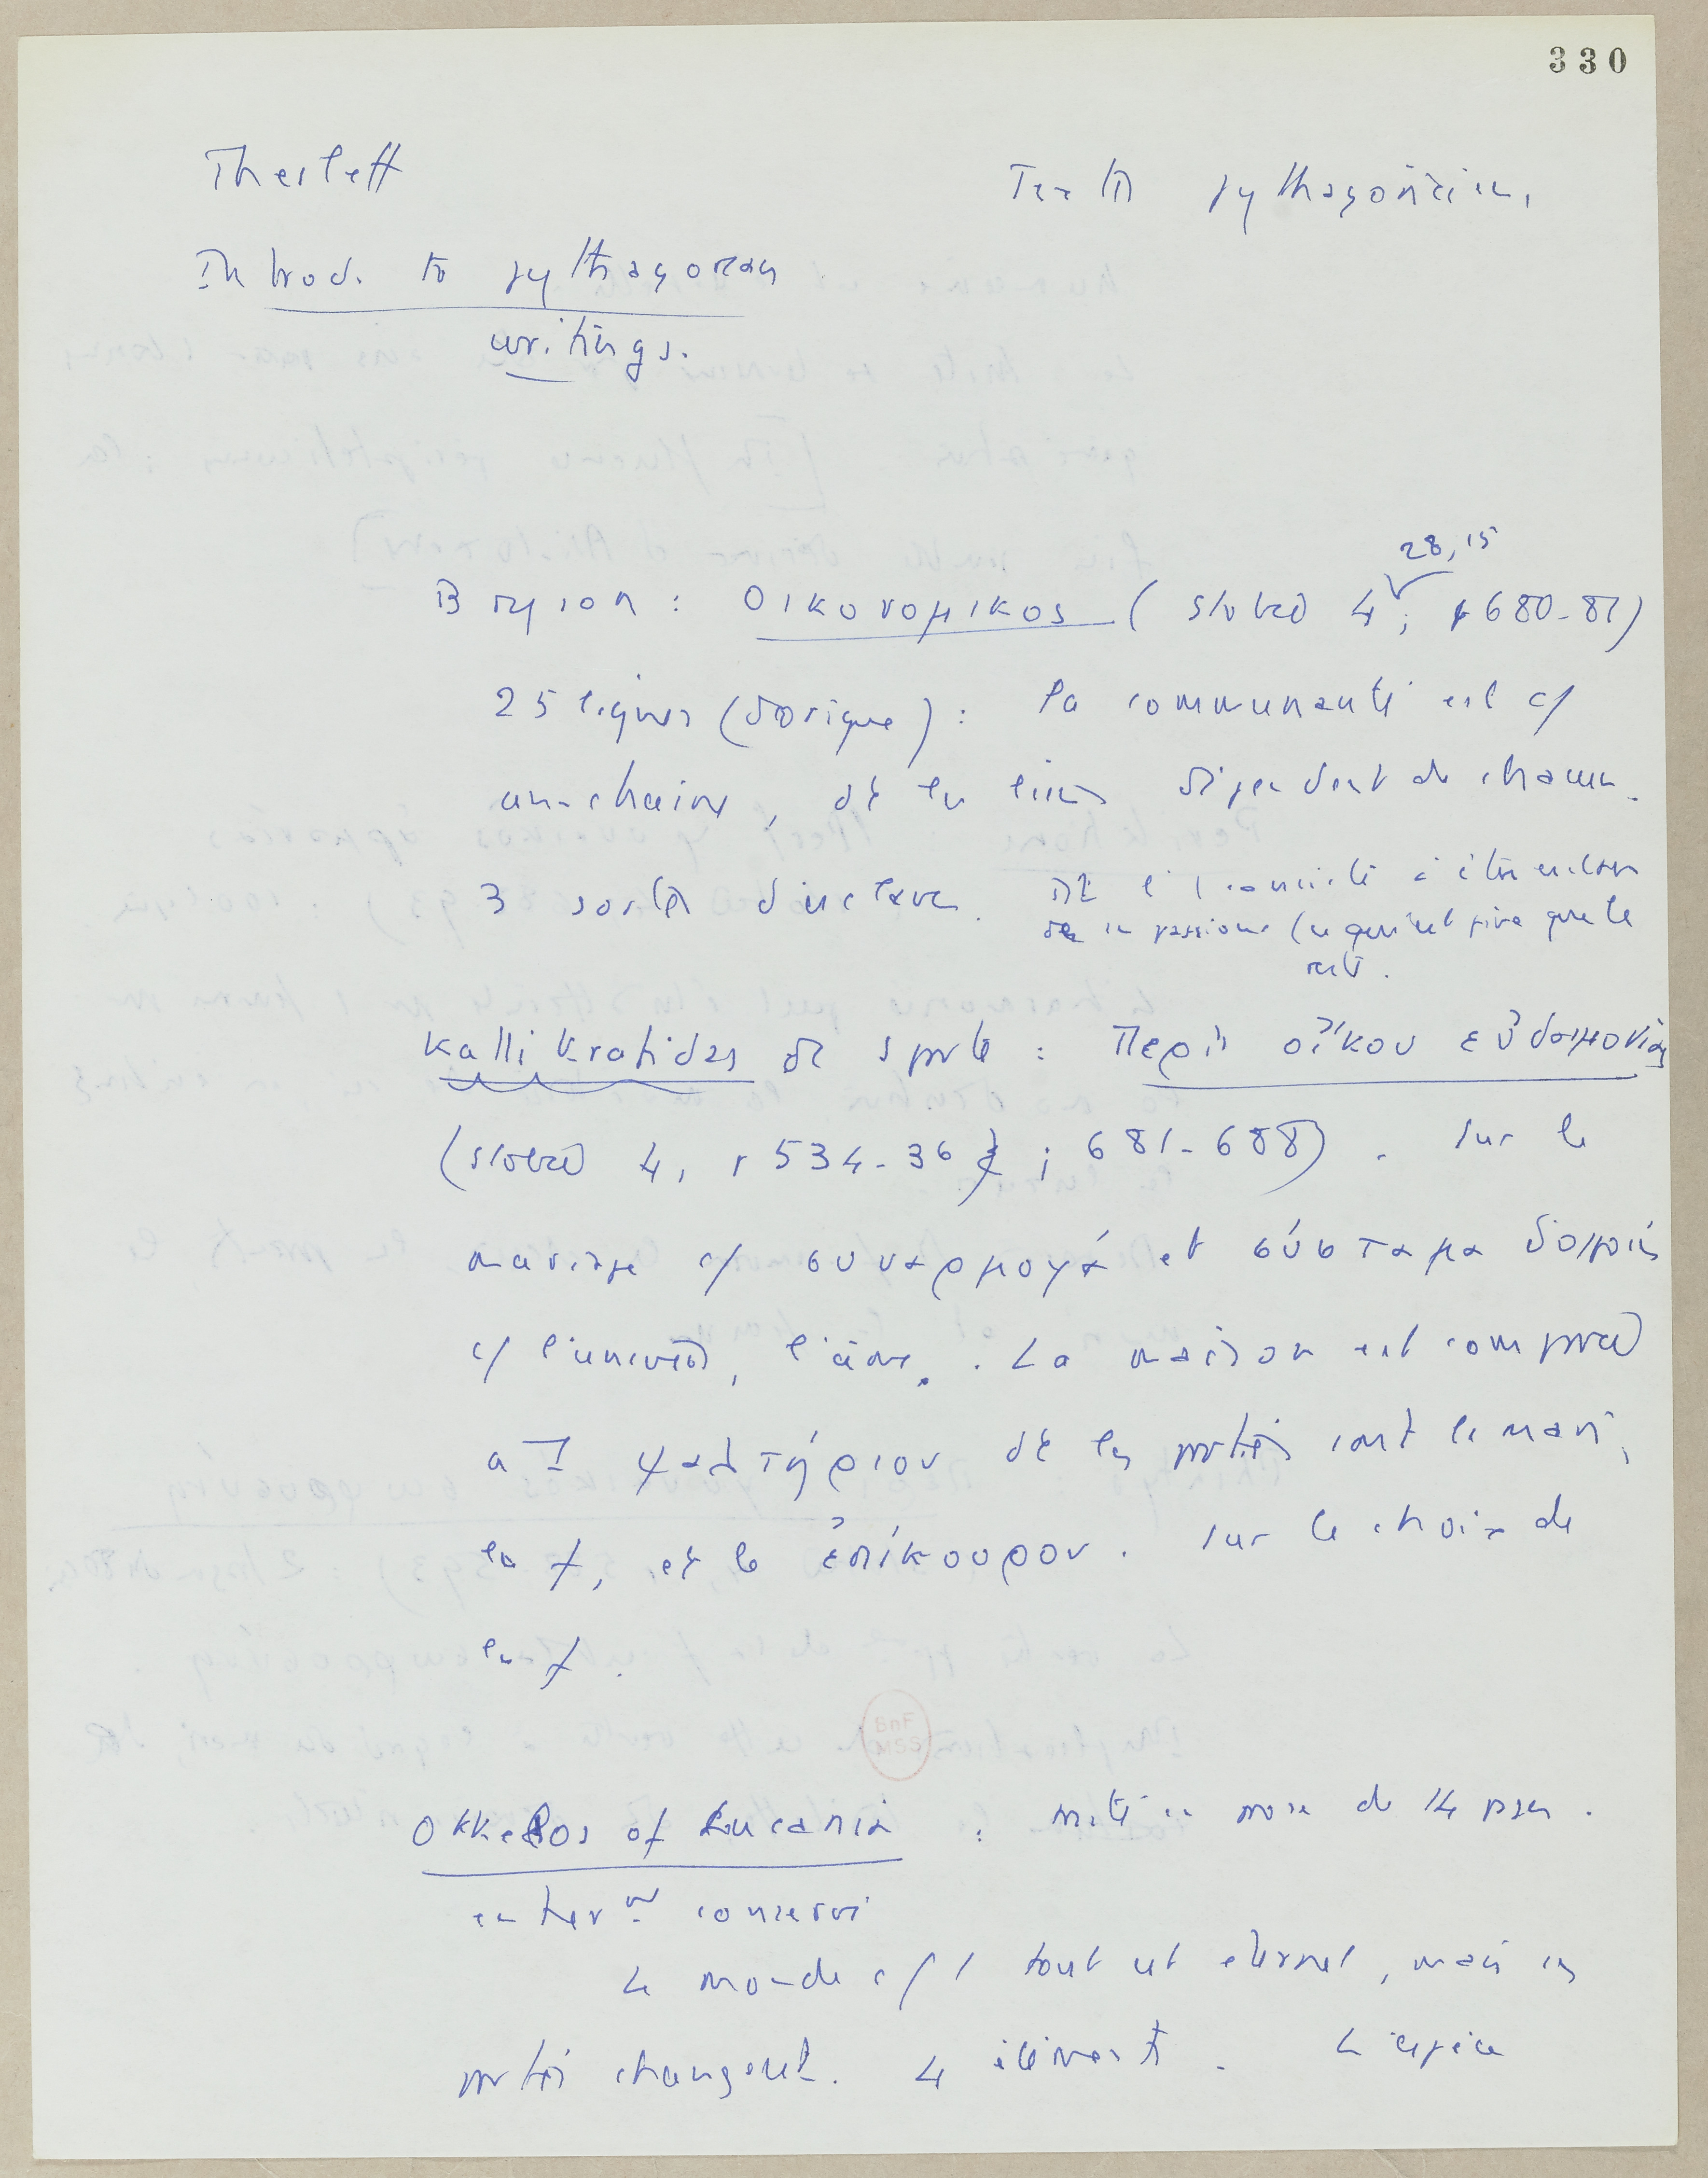 330
Thesleff
Textes pythagoriciens
Introd. to pythagorean
writings.
28, 15
Bryson : Οικονομικος (Stobée 4 ; p 680-81)
25 lignes (dorique) : la communauté est c/
une chaîne, dt les liens dépendent de chacun.
3 sortes d'esclaves. dt l'1 consiste à être esclave
de ses passions (ce qui est pire que le
reste.
Kallikratidas de Sparte : Περὶ οἴκου εὐδαιμονίας
(Stobée 4, p 534-36 ; 681-688). Sur le
mariage c/ συναρμογά et σύσταμα
c/ l'univers, l'âme. La maison est comparée
a I ψαλτήριον dt les parties sont le mari,
la f, et le ἐπίκουρον. Sur le choix de
la f.
BnF
MSS
Okkelos of Lucania : traité en prose de 14 pages.
entiermt conservé
Le monde c/ 1 tout est éternel, mais ses
parties changent. 4 éléments. L'espèce